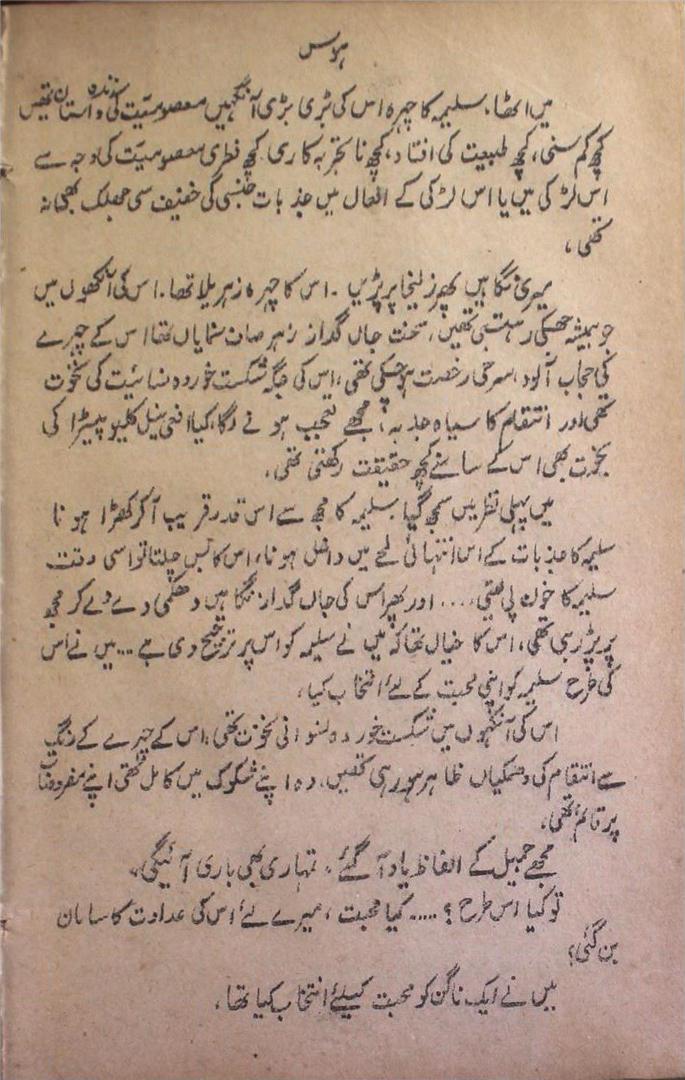 ہوس
میں اٹھا، سلیمہ کا چہرہ اس کی بڑی بڑی آنکھیں معصومیّت کی زندہ داستان تھیں
کچھ کم سنی، کچھ طبیعت کی افتاد، کچھ ناتجربہ کاری کچھ فطری معصومیّت کی وجہ سے
اس لڑکی میں یا اس لڑکی کے افعال میں جذبات جنسی کی خفیف سی جھلک بھی نہ
تھی،
میری نگاہیں پھر زلیخا پر پڑیں ۔ اس کا چہرہ زہریلا تھا۔ اس کی آنکھوں میں
جو ہمیشہ جھکی رہتی تھیں، سخت جاں گداز زہر صاف نمایاں تھا اس کے چہرے
کی حجاب آلود سرخی رخصت ہو چکی تھی، اس کی جگہ شکست خوردہ نسائیت کی نخوت
تھی اور انتقام کا سیاہ جذبہ، مجھے تعجب ہونے لگا، کیا افعی نیل کلیوپیٹرا کی
نخوت بھی اس کے سامنے کچھ حقیقت رکھتی تھی،
میں پہلی نظر میں سمجھ گیا سلیمہ کا مجھ سے اس قدر قریب آکر کھڑا ہونا
سلیمہ کا جذبات کے اس انتہائی لمحے میں داخل ہونا، اس کا بس چلتا تو اسی وقت
سلیمہ کا خون پی لیتی،.... اور پھر اس کی جاں گداز نگاہیں دھمکی دے دے کر مجھ
پر پڑ رہی تھی، اس کا خیال تھا کہ میں نے سلیمہ کو اس پر ترجیح دی ہے ... میں نے اس
کی طرح سلیمہ کو اپنی محبت کے لئے انتخاب کیا،
اس کی آنکھوں میں شکست خوردہ نسوانی نخوت تھی، اس کے چہرے کے رنگ
سے انتقام کی دھمکیاں ظاہر ہو رہی تھیں، وہ اپنے شکوک میں کامل تھی اپنے مفروضات
پر قائم تھی،
مجھے جمیل کے الفاظ یاد آگئے، تمہاری بھی باری آئیگی،
تو کیا اس طرح ؟ ..... کیا محبت ، میرے لئے اس کی عداوت کا سامان
بن گئی؟
میں نے ایک ناگن کو محبت کیلئے انتخاب کیا تھا،